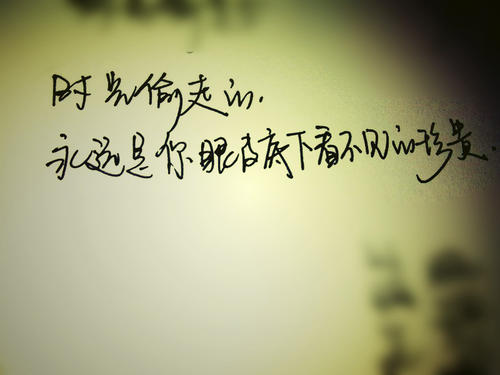 时光偷走的.
永远是你眼皮底下看不见的珍贵.